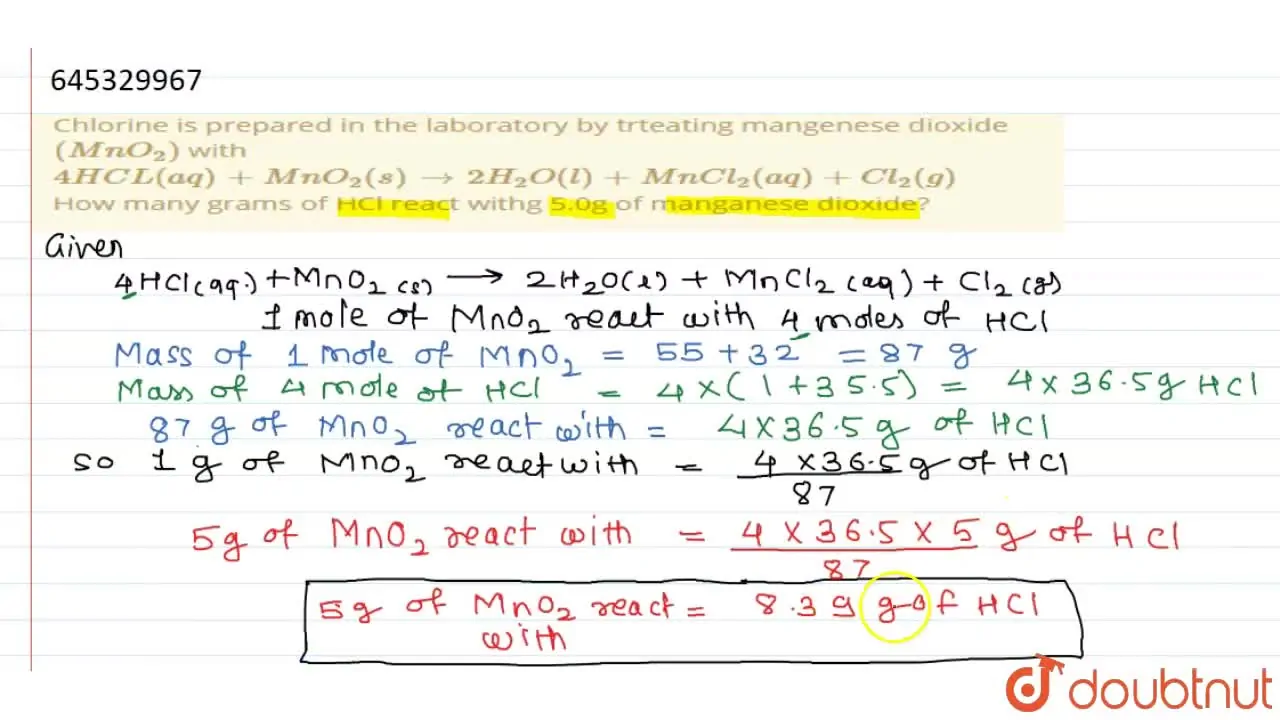 645329967
Chlorine is prepared in the laboratory by trteating mangenese dioxide
(MnO₂) with
4HCL(aq) + MnO₂(s) → 2H₂O(l) + MnCl₂(aq) + Cl₂(g)
How many grams of HCl react withg 5.0g of manganese dioxide?
Given
4HCl(aq.) + MnO₂(s) → 2H₂O(l) + MnCl₂(aq) + Cl₂(g)
1 mole of MnO₂ react with 4 moles of HCl
Mass of 1 mole of MnO₂ = 55 + 32 = 87 g
Mass of 4 mole of HCl = 4×(1+35.5) = 4×36.5g HCl
87 g of MnO₂ react with = 4×36.5 g of HCl
so 1 g of MnO₂ react with = 4 ×36.5 g of HCl
87
5g of MnO₂ react with = 4 × 36.5 × 5 g of HCl
87
5g of MnO₂ react = 8.39 g of HCl
with
doubtnut